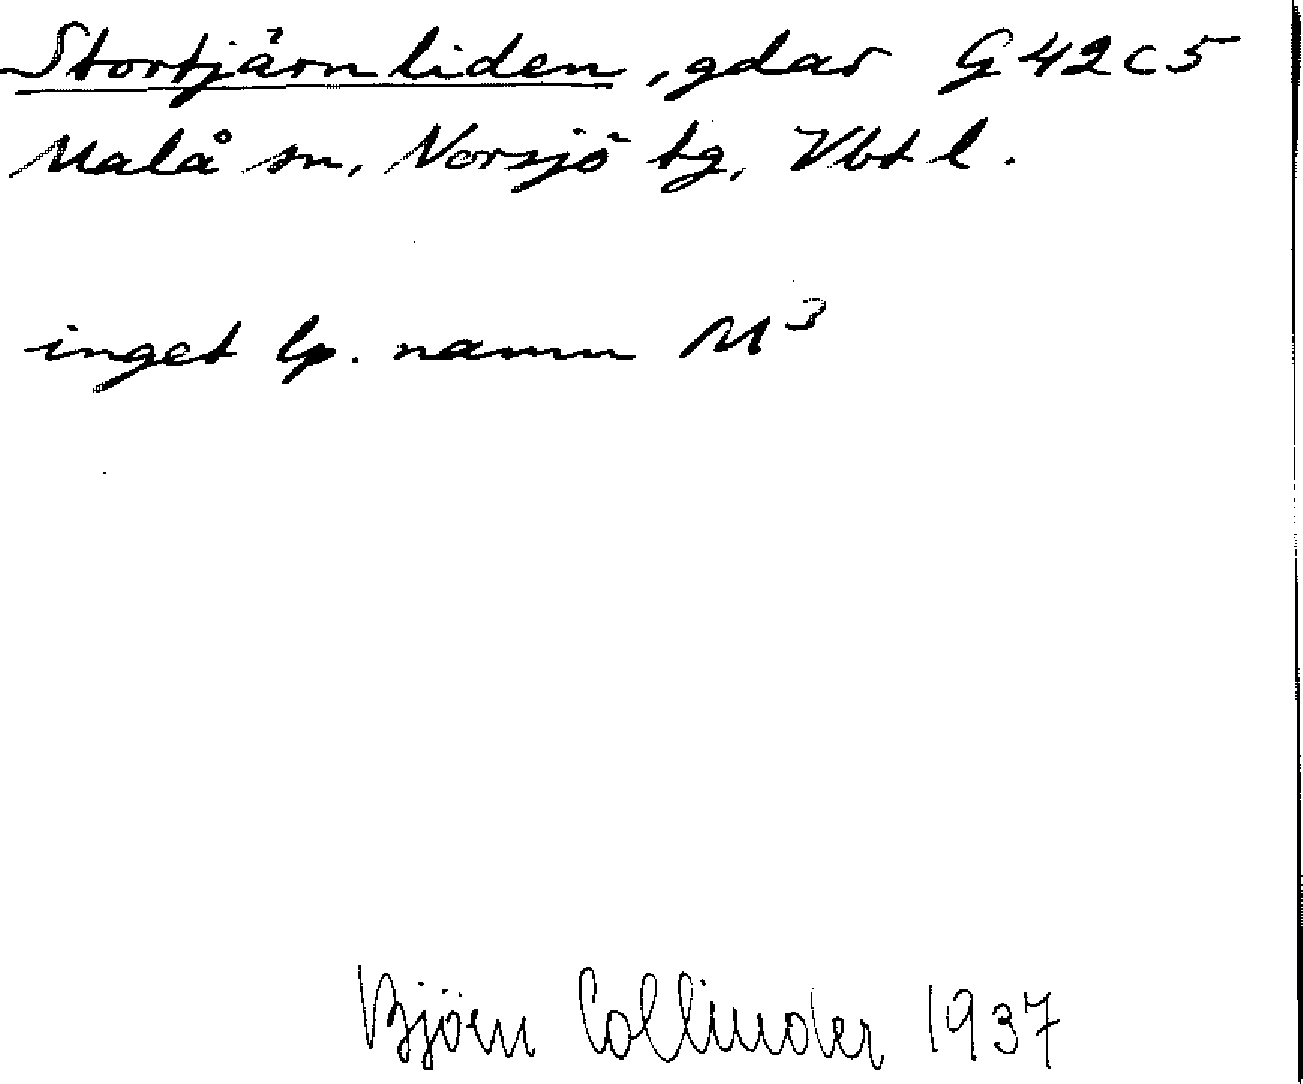 Stortjärnliden, gdar G42C5
Malå sn, Norsjö tg, Vbt l.
inget lp. namn M³
Björn Collinder 1937